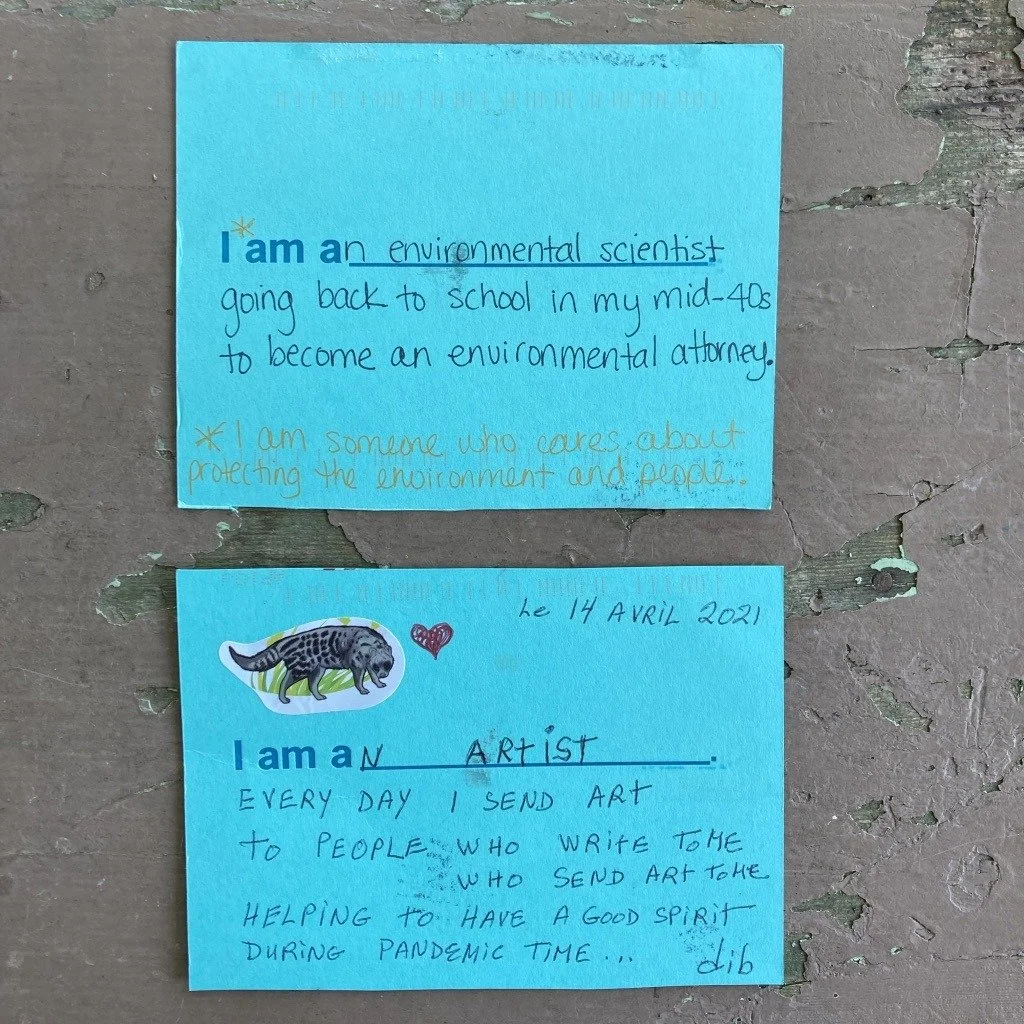 I *am an environmental scientist
going back to school in my mid-40s
to become an environmental attorney.
* I am someone who cares about
protecting the environment and people.
Le 14 AVRIL 2021
I am aN ARTiST.
EVERY DAY I SEND ART
to PEOPLE WHO WRITE TO ME
WHO SEND ART TO ME
HELPING to HAVE A GOOD SPIRIT
DURING PANDEMIC TIME...
dib